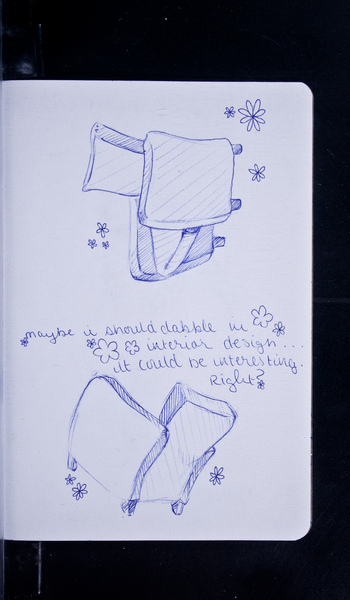 maybe ii should dabble in
interior design...
it could be interesting.
Right?